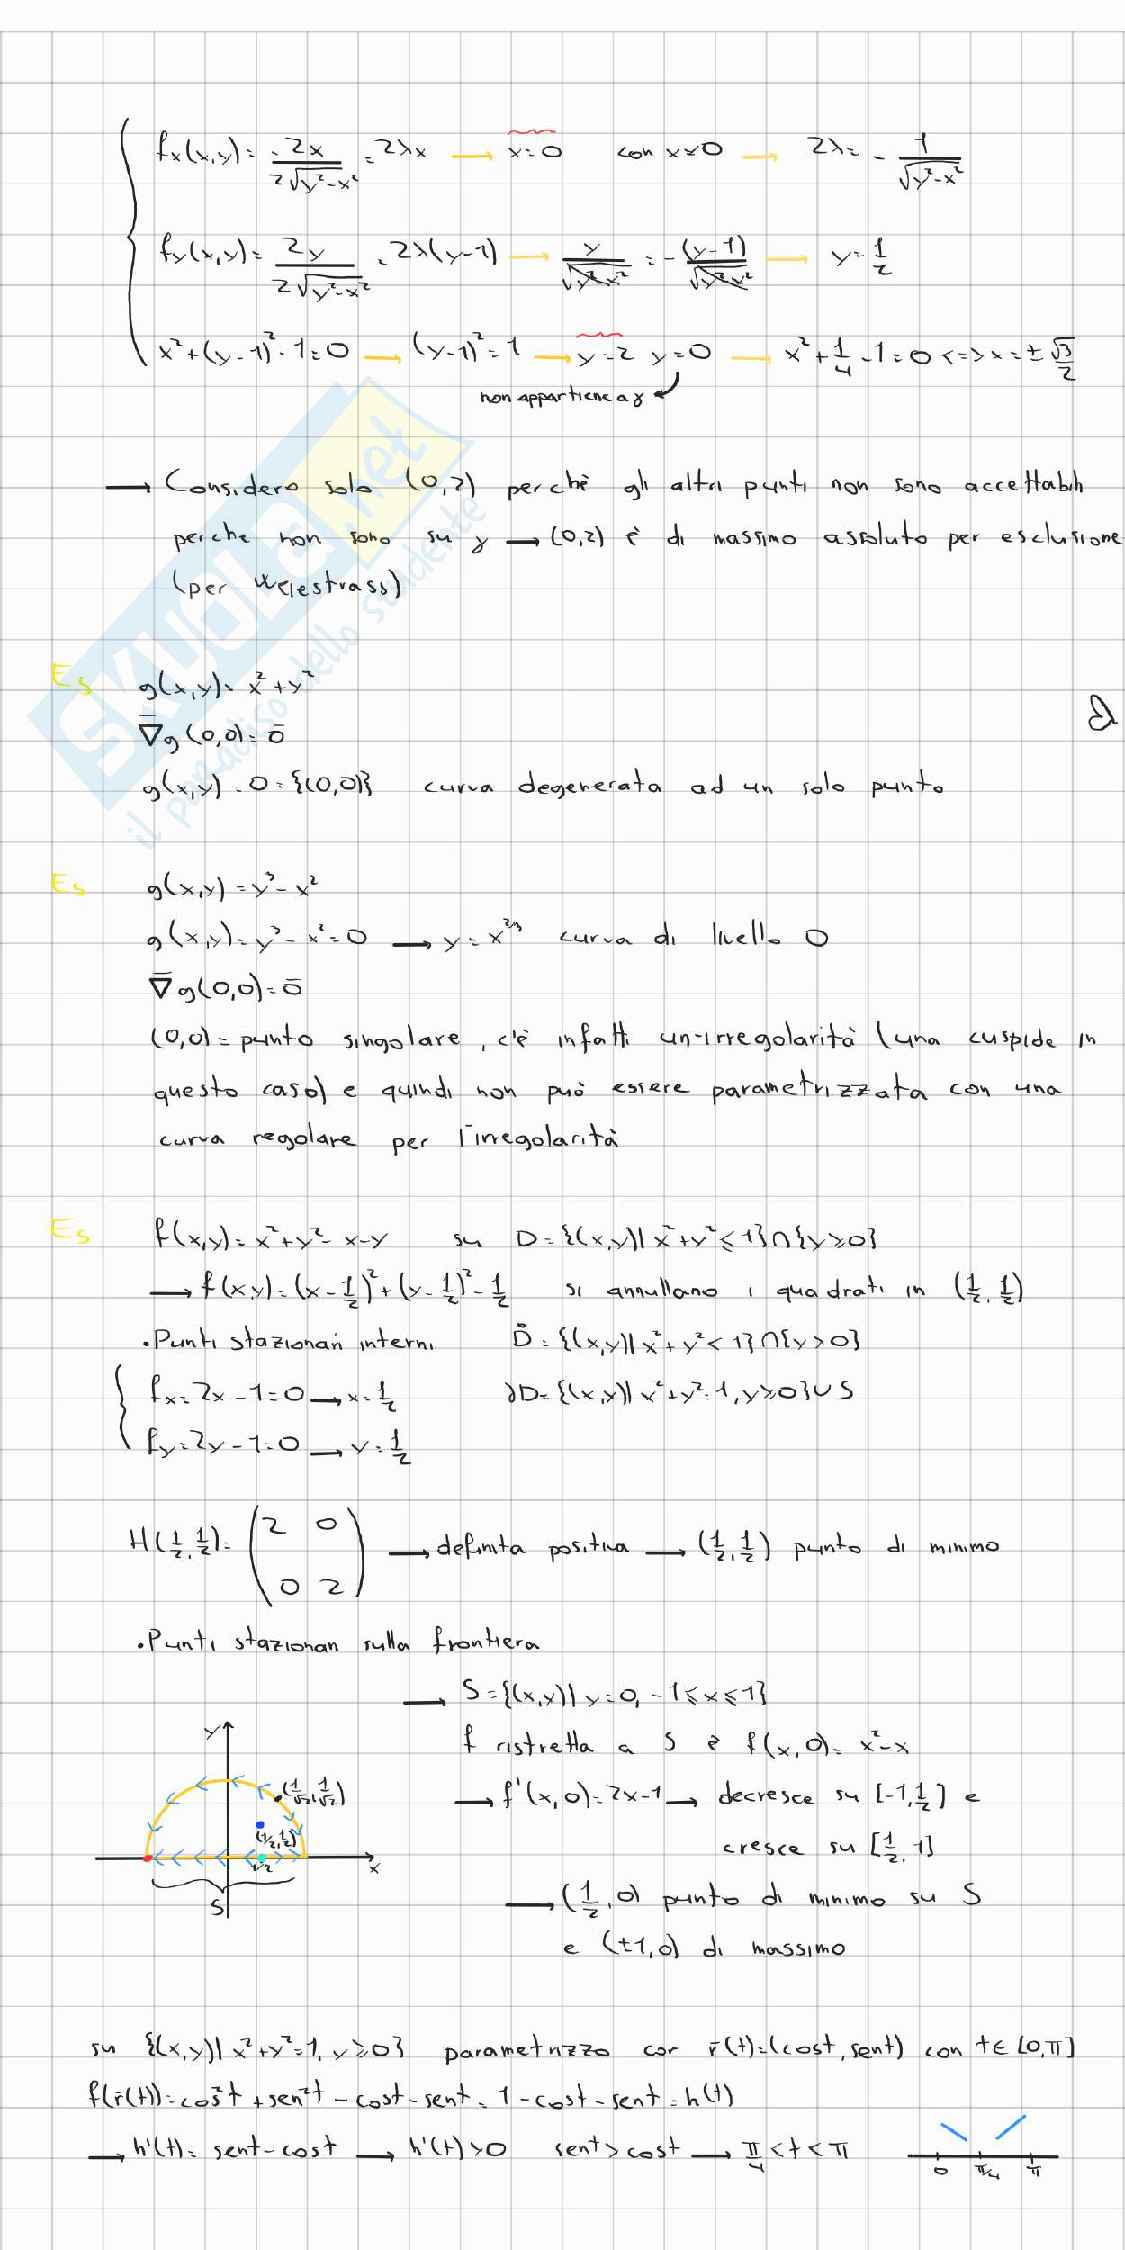 fx(x,y) = -2x / 2√(y²-x²) = 2λx → x=0 con x≠0 → 2λ = - 1/√(y²-x²)
fy(x,y) = 2y / 2√(y²-x²) = 2λ(y-1) → y/√(y²-x²) = - (y-1)/√(y²-x²) → y = 1/2
x²+(y-1)²-1=0 → (y-1)²=1 → y=2 y=0 → x²+1/4-1=0 <=> x=± √3/2
non appartiene a γ
→ Considero solo (0,2) perchè gli altri punti non sono accettabili
perche non sono su γ → (0,2) è di massimo assoluto per esclusione
(per Weiestrass)
Es g(x,y)= x²+y²
∇g(0,0)=0
g(x,y)=0={(0,0)} curva degenerata ad un solo punto
Es g(x,y)=y³-x²
g(x,y)=y³-x²=0 → y=x^2/3 curva di livello 0
∇g(0,0)=0
(0,0)= punto singolare, c'è infatti un'irregolarità (una cuspide in
questo caso) e quindi non può essere parametrizzata con una
curva regolare per l'irregolarità
Es f(x,y)=x²+y²-x-y su D={(x,y)| x²+y²≤1}∩{y≥0}
→ f(x,y)=(x-1/2)²+(y-1/2)²-1/2 si annullano i quadrati in (1/2,1/2)
•Punti stazionari interni D={(x,y)| x²+y²<1}∩{y>0}
fx=2x-1=0 → x=1/2 ∂D={(x,y)| x²+y²=1, y≥0}∪S
fy=2y-1=0 → y=1/2
H(1/2,1/2)= (2 0
0 2) → definita positiva → (1/2,1/2) punto di minimo
•Punti stazionari sulla frontiera
→ S={(x,y)| y=0, -1≤x≤1}
f ristretta a S è f(x,0)=x²-x
→ f'(x,0)=2x-1 → decresce su [-1,1/2] e
cresce su [1/2,1]
→ (1/2,0) punto di minimo su S
e (±1,0) di massimo
y
(1/√2,1/√2)
(1/2,1/2)
1/2
x
S
su {(x,y)| x²+y²=1, y≥0} parametrizzo con r(t)=(cost,sent) con t∈[0,π]
f(r(t))=cos²t+sen²t-cost-sent=1-cost-sent=h(t)
→ h'(t)=sent-cost → h'(t)>0 sent>cost → π/4<t<π
0 π/4 π
SKUOLA.net
il paradiso dello studente